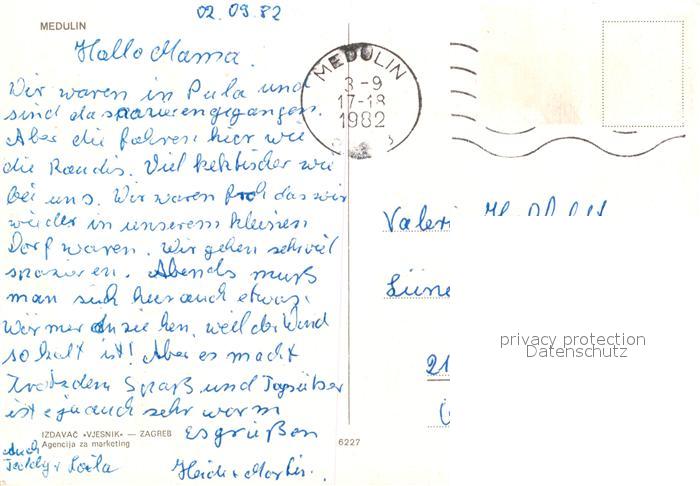 02.09.82
MEDULIN
Hallo Mama.
Wir waren in Pula und
sind da spazierengegangen.
Aber die fahren hier wie
die Raudis. Viel hektischer wie
bei uns. Wir waren froh das wir
wieder in unserem kleinen
Dorf waren. Wir gehen sehr viel
spazieren. Abends muß
man sich hier auch etwas
wärmer anziehen, weil der Wind
so kalt ist! Aber es macht
trotzdem Spaß und Tagsüber
ist es ja auch sehr warm
Es grüßen
auch
Teddy + Laila
MEDULIN
3-9
17-18
1982
Valeri
Lüne
21
privacy protection
Datenschutz
IZDAVAČ «VJESNIK» — ZAGREB
Agencija za marketing
6227